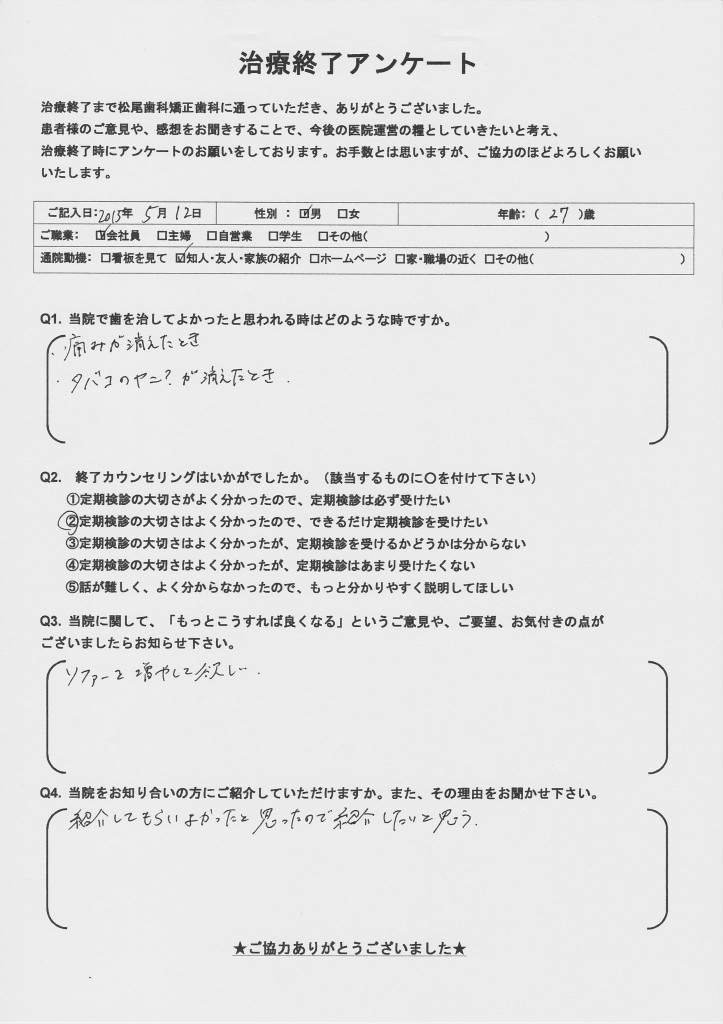 治療終了アンケート
治療終了まで松尾歯科矯正歯科に通っていただき、ありがとうございました。
患者様のご意見や、感想をお聞きすることで、今後の医院運営の糧としていきたいと考え、
治療終了時にアンケートのお願いをしております。お手数とは思いますが、ご協力のほどよろしくお願い
いたします。
ご記入日:2015年 5月 12日 性別 : ☑男 □女 年齢:( 27 )歳
ご職業: ☑会社員 □主婦 □自営業 □学生 □その他( )
通院動機: □看板を見て ☑知人・友人・家族の紹介 □ホームページ □家・職場の近く □その他( )
Q1. 当院で歯を治してよかったと思われる時はどのような時ですか。
・痛みが消えたとき
・タバコのヤニ?が消えたとき.
Q2. 終了カウンセリングはいかがでしたか。（該当するものに〇を付けて下さい）
①定期検診の大切さがよく分かったので、定期検診は必ず受けたい
②定期検診の大切さはよく分かったので、できるだけ定期検診を受けたい
③定期検診の大切さはよく分かったが、定期検診を受けるかどうかは分からない
④定期検診の大切さはよく分かったが、定期検診はあまり受けたくない
⑤話が難しく、よく分からなかったので、もっと分かりやすく説明してほしい
Q3. 当院に関して、「もっとこうすれば良くなる」というご意見や、ご要望、お気付きの点が
ございましたらお知らせ下さい。
ソファーを増やして欲しい.
Q4. 当院をお知り合いの方にご紹介していただけますか。また、その理由をお聞かせ下さい。
紹介してもらいよかったと思ったので紹介したいと思う.
★ご協力ありがとうございました★